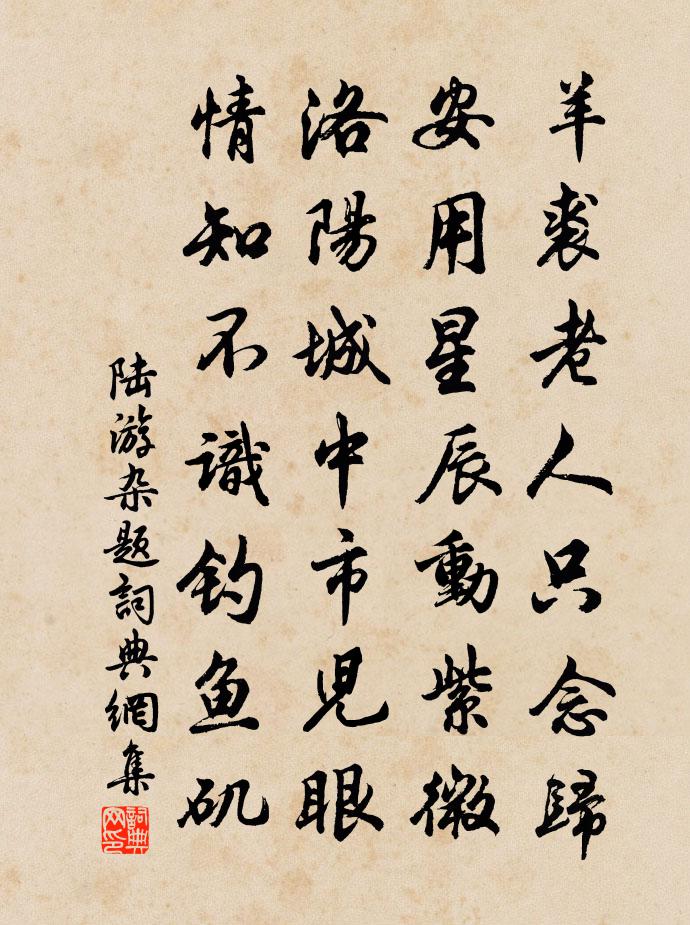 羊裘老人只念歸
安用星辰動紫微
洛陽城中市児眼
情知不識钓鱼矶
陆游杂题詞典網集
詞典网印